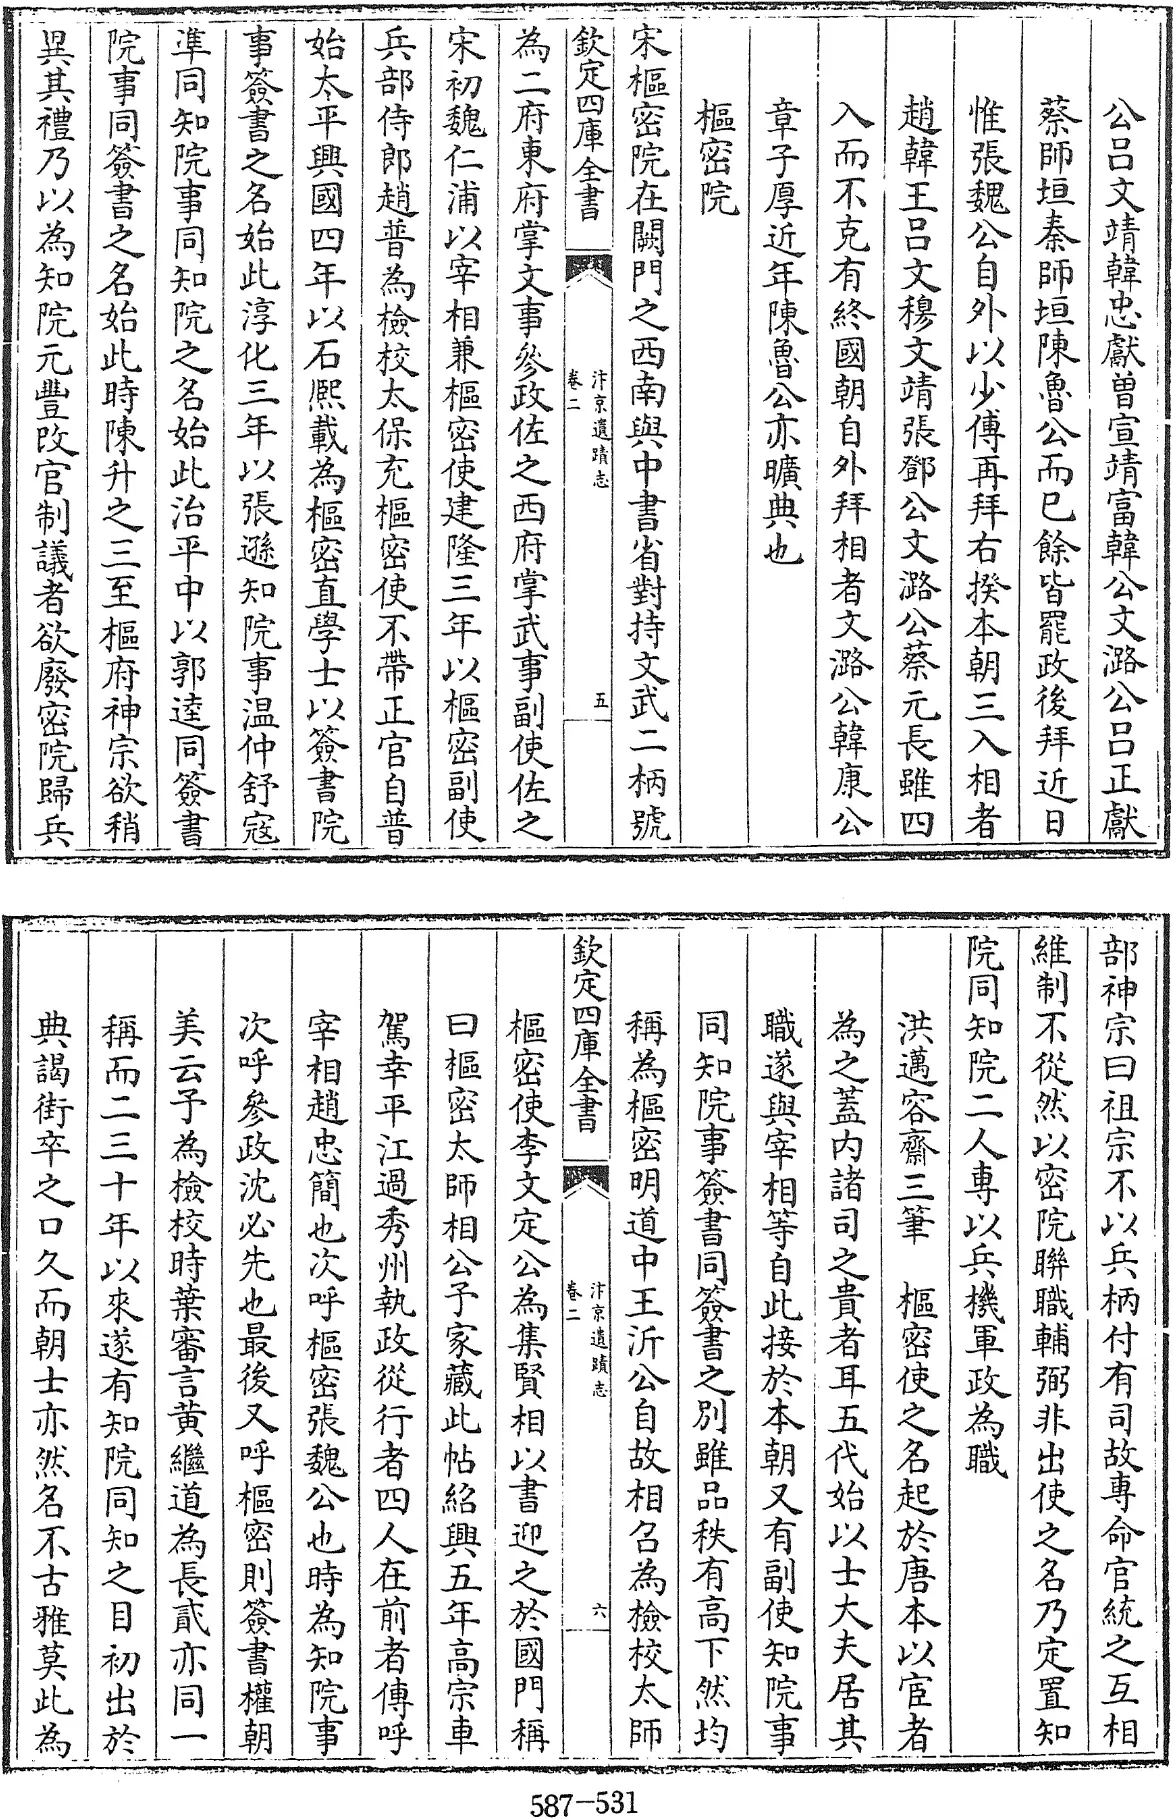 公呂文靖韓忠獻曽宣靖富韓公文潞公呂正獻
蔡師垣秦師垣陳魯公而已餘皆罷政後拜近日
惟張魏公自外以少傅再拜右揆本朝三入相者
趙韓王呂文穆文靖張鄧公文潞公蔡元長雖四
入而不克有終國朝自外拜相者文潞公韓康公
章子厚近年陳魯公亦曠典也
樞密院
宋樞密院在闕門之西南與中書省對持文武二柄號
欽定四庫全書
汴京遺蹟志
卷二
五
為二府東府掌文事參政佐之西府掌武事副使佐之
宋初魏仁浦以宰相兼樞密使建隆三年以樞密副使
兵部侍郎趙普為檢校太保充樞密使不帶正官自普
始太平興國四年以石熙載為樞密直學士以簽書院
事簽書之名始此淳化三年以張遜知院事温仲舒寇
準同知院事同知院之名始此治平中以郭逵同簽書
院事同簽書之名始此時陳升之三至樞府神宗欲稍
異其禮乃以為知院元豐改官制議者欲廢密院歸兵
部神宗曰祖宗不以兵柄付有司故専命官統之互相
維制不從然以密院聨職輔弼非出使之名乃定置知
院同知院二人専以兵機軍政為職
洪邁容齋三筆　樞密使之名起於唐本以宦者
為之蓋内諸司之貴者耳五代始以士大夫居其
職遂與宰相等自此接於本朝又有副使知院事
同知院事簽書同簽書之別雖品秩有高下然均
稱為樞密明道中王沂公自故相召為檢校太師
欽定四庫全書
汴京遺蹟志
卷二
六
樞密使李文定公為集賢相以書迎之於國門稱
曰樞密太師相公予家藏此帖紹興五年高宗車
駕幸平江過秀州執政從行者四人在前者傳呼
宰相趙忠簡也次呼樞密張魏公也時為知院事
次呼參政沈必先也最後又呼樞密則簽書權朝
美云予為檢校時葉審言黄繼道為長貳亦同一
稱而二三十年以來遂有知院同知之目初出於
典謁街卒之口久而朝士亦然名不古雅莫此為
587-531